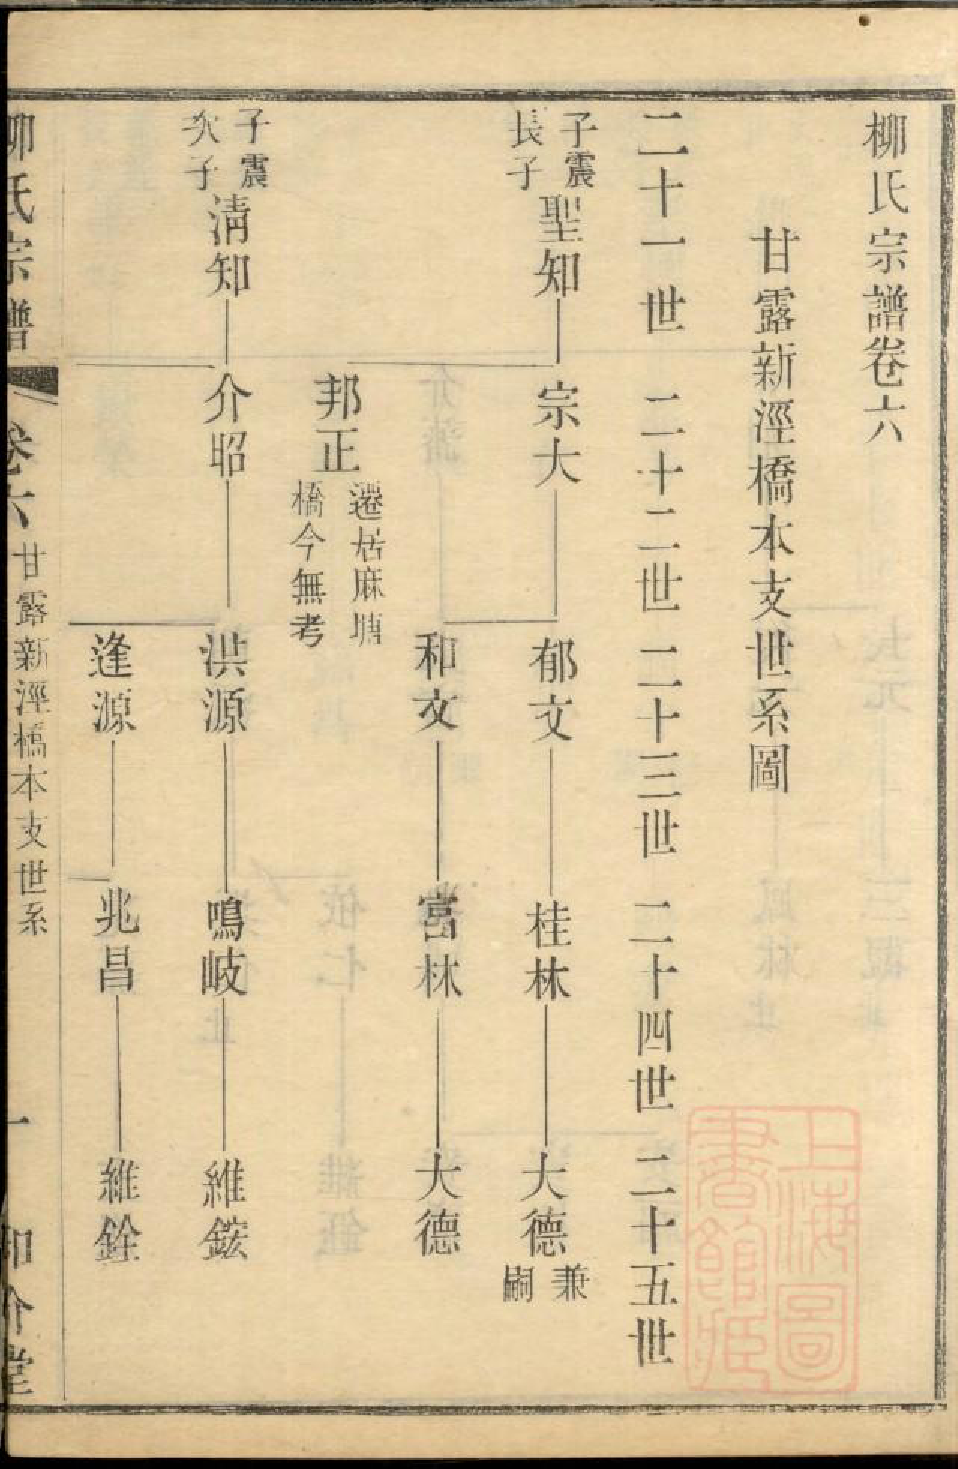 柳氏宗譜卷六
甘露新涇橋本支世系圖
二十一世 二十二世 二十三世 二十四世 二十五世
子震長子 聖知 宗大 郁文 桂林 大德 兼嗣
和文 富林 大德
邦正 遷居麻塘橋今無考
子震次子 清知 介昭 洪源 鳴岐 維鋐
逢源 兆昌 維銓
柳氏宗譜 卷六 甘露新涇橋本支世系 一 知介堂
上海圖書館藏